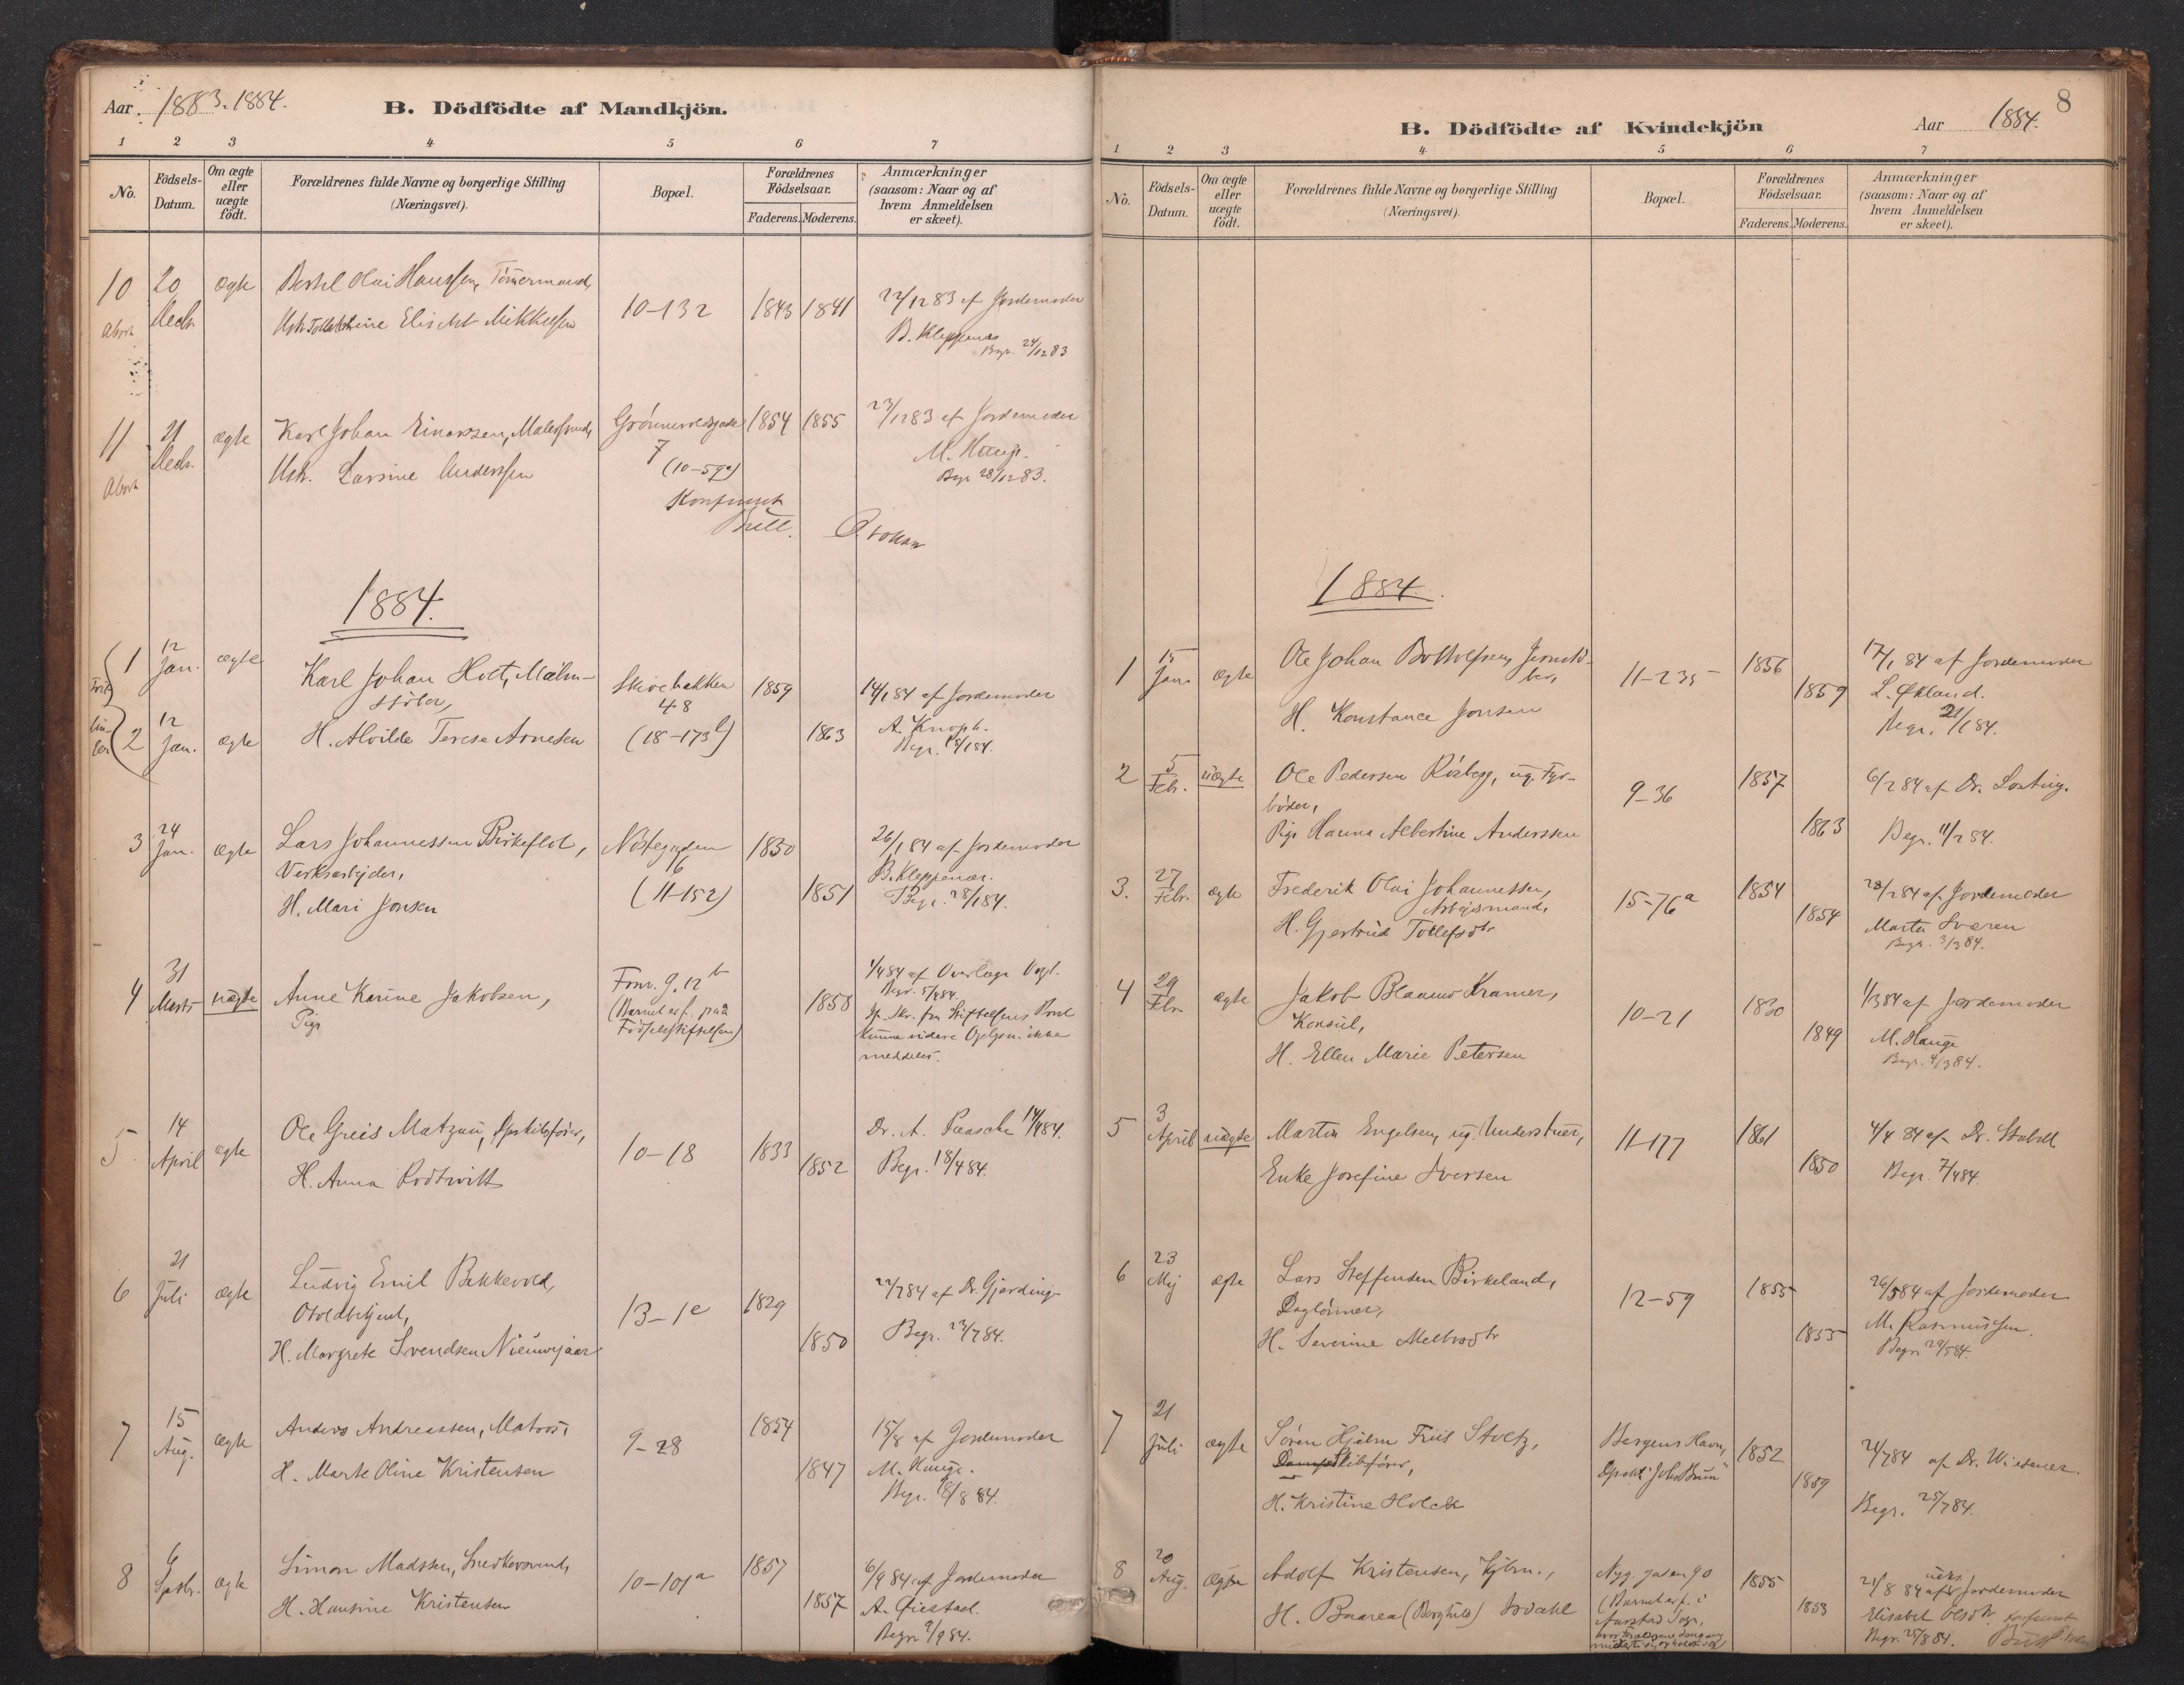 Aar 1883. 1884.
B. Dödfödte af Mandkjön.
1 2 3 4 5 6 7
No.
Födsels-Datum.
Om ægte eller uægte födt.
Forældrenes fulde Navne og borgerlige Stilling (Næringsvei).
Bopæl.
Forældrenes Födselsaar.
Faderens. Moderens.
Anmærkninger (saasom: Naar og af hvem Anmeldelsen er skeet).
10 20 ægte Berthel Olai Hanssen, Tömermand,
Abort Decbr. Elisabet Mikkelsen 10-132 1843 1841 22/12 83 af Jordemoder
B. Kleppenæs
Begr. 24/12 83
11 21 ægte Karl Johan Einarsen, Malersvend, Grönnevoldsgade 1854 1855 23/12 83 af Jordemoder
Abort Decbr. Hstr. Larsine Anderssen 7 (10-59a) M. Hauge.
Begr 28/12 83.
Konfereret
Bull.
1884.
1 12 Jan. ægte Karl Johan Holt, Malm-
støber, Skivebakken 1859 14/1 84 af Jordemoder
48 A. Knoph.
2 12 Jan. ægte H. Alvilde Terese Arnesen (18-173b) 1863 Begr. 18/1 84.
3 24 Jan. ægte Lars Johannessen Birkeflot, Nöstegaden 1850 26/1 84 af Jordemoder
Verksarbejder, 16 B. Kleppenæs.
H. Mari Jonsen (11-152) 1851 Begr. 28/1 84.
4 31 Marts uægte Anne Karine Jakobsen, Fom. 9. 12b 1858 1/4 84 af Overlæge Vogt.
Pige (Barnet er f. paa Begr. 5/4 84.
Födselsstiftelsen) kunne videre Oplysn. ikke
meddeles.
5 14 April ægte Ole Greis Matzau, Dpskibsförer, 10-18 1833 Dr. A. Paasche 14/4 84.
H. Anna Rodtwitt 1852 Begr. 18/4 84.
6 21 Juli ægte Ludvig Emil Bakkevold,
Toldbetjent, 13-1e 1829 22/7 84 af Dr. Gjerding
H. Margrete Svendsen Nieuwejaar 1850 Begr. 23/7 84.
7 15 Aug. ægte Anders Andreassen, Matros, 9-28 1854 15/8 af Jordemoder
H. Marte Oline Kristensen 1847 M. Hauge.
Begr. 18/8 84.
8 6 Septbr. ægte Simon Madssen, Snedkersvend, 10-101a 1857 6/9 84 af Jordemoder
H. Hansine Kristensen 1857 A. Oiestad.
Begr. 9/9 84.
8
B. Dödfödte af Kvindekjön
Aar 1884.
1 2 3 4 5 6 7
No.
Födsels-Datum.
Om ægte eller uægte födt.
Forældrenes fulde Navne og borgerlige Stilling (Næringsvei).
Bopæl.
Forældrenes Födselsaar.
Faderens. Moderens.
Anmærkninger (saasom: Naar og af hvem Anmeldelsen er skeet).
1884.
1 15 Jan. ægte Ole Johan Bottolfsen, Jernstö-
ber, 11-235 1856 17/1 84 af Jordemoder
H. Konstance Jonsen 1859 L. Økland.
Begr. 21/1 84.
2 5 Febr. uægte Ole Pedersen Röberg, ug. Fyr-
böder, 9-36 1857 6/2 84 af Dr. Losting.
Pige Hanna Albertine Anderssen 1863 Begr. 11/2 84.
3. 27 Febr. ægte Frederik Olai Johannessen,
Arbejdsmand, 15-76a 1854 28/2 84 af Jordemoder
H. Gjertrud Tollefsdtr 1854 Marta Sværen
Begr. 3/3 84.
4 29 Febr. ægte Jakob Blaauw Kramer,
Konsul, 10-21 1830 1/3 84 af Jordemoder
H. Ellen Marie Petersen 1849 M. Hauge
Begr. 4/3 84.
5 3 April uægte Martin Engelsen, ug. 11-177 1861 4/4 84 af Dr. Stabell
Enke Josefine Iversen 1850 Begr. 7/4 84.
6 23 Mej ægte Lars Steffensen Birkeland,
Daglönner, 12-59 1855 26/5 84 af Jordemoder
H. Severine 1855 M. Rasmussen.
Begr. 29/5 84.
7 21 Juli ægte Sören Hjelm Friis Stoltz, Bergens Havn, 1852 21/7 84 af Dr. Wiesener.
Dampskibsförer, Dpskb. "John Brun"
H. Kristine Holck 1859 Begr. 25/7 84.
8 20 Aug. ægte Adolf Kristensen, Nyg. gaden 90 1855 21/8 84 af Jordemoder
H. Baarea (Borghild) Isdahl (Barnet er f. i 1853 Elisabet Olsdtr.
Aarstad Sogn, Begr. 25/8 84.